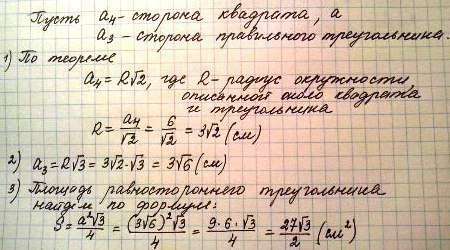 Пусть a₄ - сторона квадрата, а
a₃ - сторона правильного треугольника.
1) По теореме
a₄ = R√2, где R - радиус окружности
описанной около квадрата
и треугольника
R = a₄/√2 = 6/√2 = 3√2 (см)
2) a₃ = R√3 = 3√2·√3 = 3√6 (см)
3) Площадь равностороннего треугольника
найдём по формуле:
S = a²√3/4 = (3√6)²√3/4 = 9·6·√3/4 = 27√3/2 (см²)